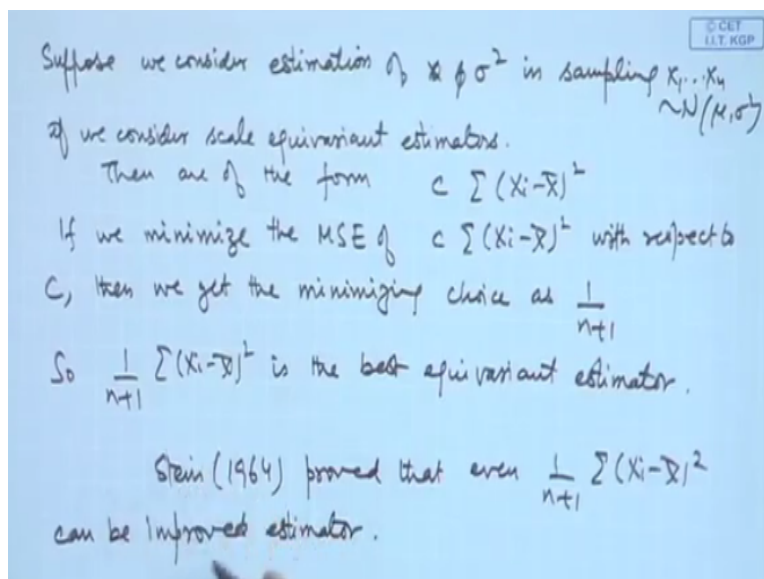 © CET
I.I.T. KGP
Suppose we consider estimation of σ² in sampling X₁...Xₙ
~N(μ,σ²)
If we consider scale equivariant estimators.
Then are of the form c Σ(Xi-X̄)²
If we minimize the MSE of c Σ(Xi-X̄)² with respect to
C, then we get the minimizing choice as 1/(n+1)
So 1/(n+1) Σ(Xi-X̄)² is the best equivariant estimator.
Stein (1964) proved that even 1/(n+1) Σ(Xi-X̄)²
can be improved estimator.